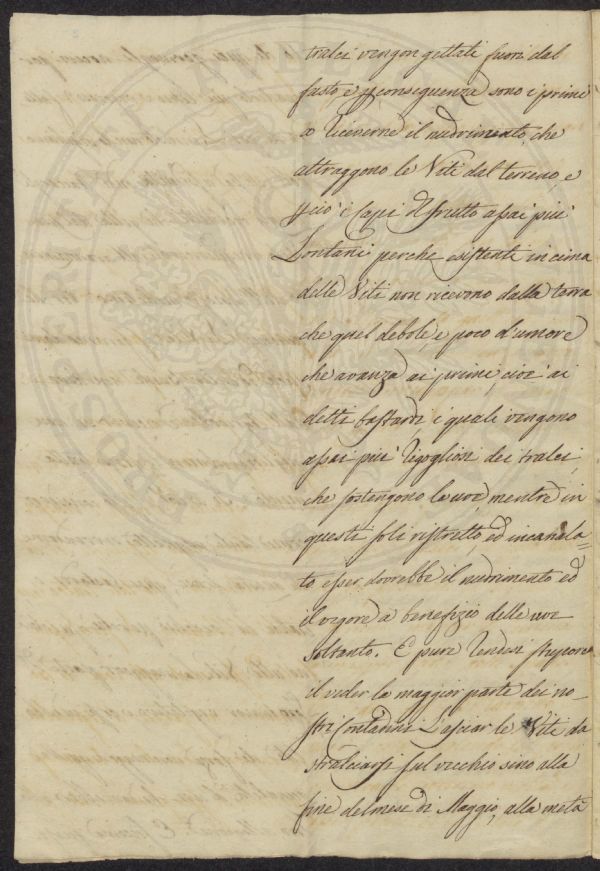 tralci vengon gettati fuori dal
fusto e p conseguenza sono i primi
a ricenerne il nudrimento, che
attraggono le Viti dal terreno, e
p ciò i Capi d frutto assai più
Lontani perche esistenti in cima
delle Viti non ricevono dalla terra
che quel debole, e poco d'umore
che avanza ai primi, cioè ai
detti bastardi i quali vengono
assai più rigogliosi dei tralci,
che sostengono le uve, mentre in
questi soli ristretto, ed incanala=
to esser dovrebbe il nudrimento ed
il vigore a benefizio delle uve
soltanto. E pure rendesi stupore
il veder la maggior parte dei no-
stri Contadini Lasciar le Viti da
stralciarsi sul vecchio sino alla
fine del mese di Maggio, alla metà